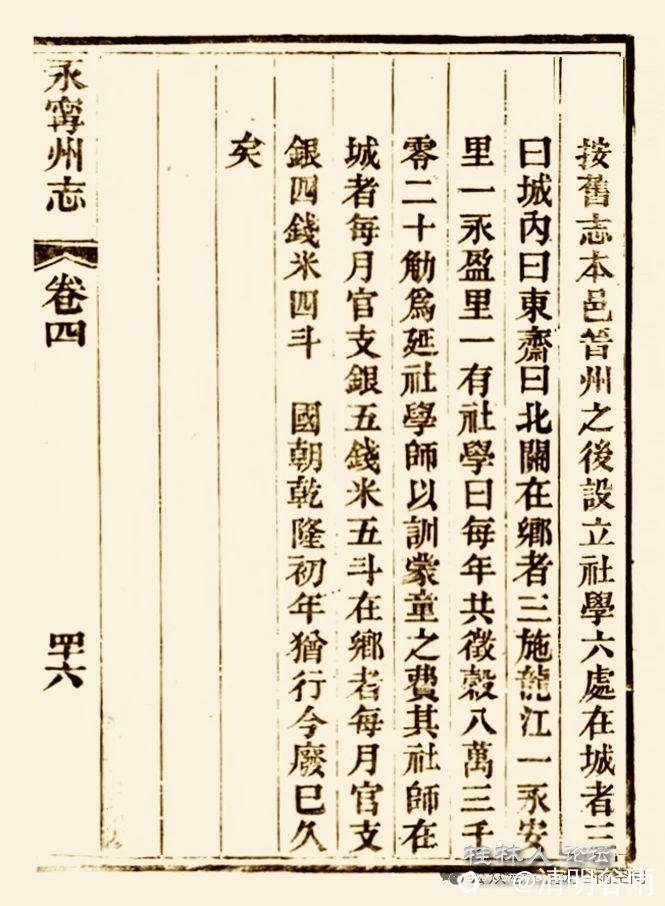 按舊志本邑晉州之後設立社學六處在城者三
曰城內曰東齋曰北關在鄉者三施龍江一永安
里一永盈里一有社學曰每年共徵穀八萬三千
零二十觔爲延社學師以訓蒙童之費其社師在
城者每月官支銀五錢米五斗在鄉者每月官支
銀四錢米四斗 國朝乾隆初年猶行今廢已久
矣
永寧州志 卷四 四十六
桂林人论坛
@清明谷雨